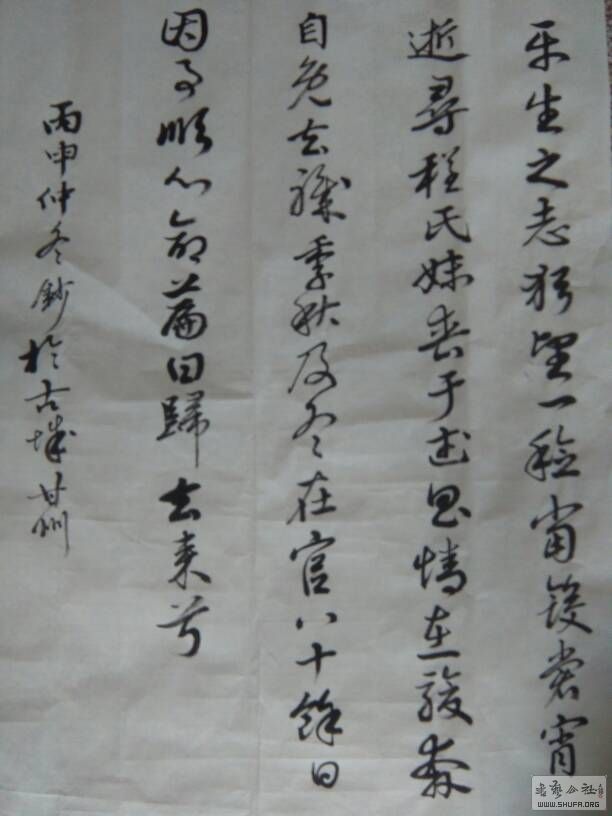 平生之志猶望一稔當斂裳宵
逝尋程氏妹喪于武昌情在駿奔
自免去職季秋及冬在官八十餘日
因事順心命篇曰歸去來兮
丙申仲冬鈔於古城甘州
書藝公社
WWW.SHUFA.ORG